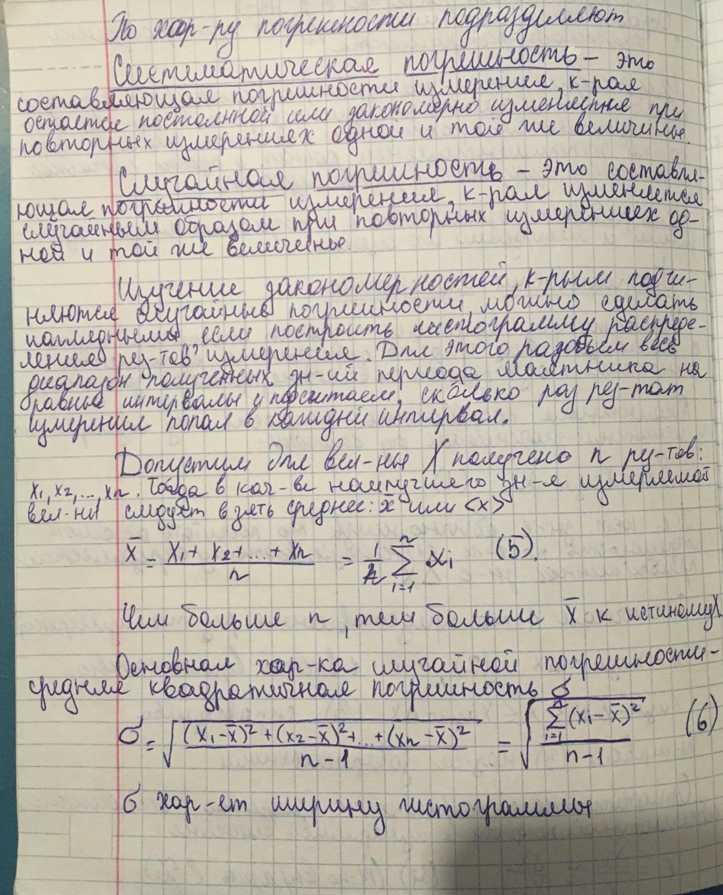 По хар-ру погрешности подразделяют
Систематическая погрешность – это
составляющая погрешности измерения, к-рая
остаётся постоянной или закономерно изменяется при
повторных измерениях одной и той же величины.
Случайная погрешность – это составля-
ющая погрешности измерения, к-рая изменяется
случайным образом при повторных измерениях од-
ной и той же величины
Изучение закономерностей, к-рым подчи-
няются случайные погрешности можно сделать
наглядными если построить гистограмму распреде-
ления рез-тов измерения. Для этого разобьём весь
диапазон полученных зн-ий периода маятника на
равные интервалы и посчитаем, сколько раз рез-тат
измерения попал в каждый интервал.
Допустим для вел-ны X получено n рез-тов:
x₁, x₂, ..., xₙ. Тогда в кач-ве наилучшего зн-я измеряемой
вел-ны следует взять среднее: x̄ или <x>
x̄ = (x₁ + x₂ + ... + xₙ) / n = 1/n ∑ᵢ₌₁ⁿ xᵢ (5).
Чем больше n, тем больше x̄ к истиному X
Основная хар-ка случайной погрешности-
средняя квадратичная погрешность σ
σ = √(((x₁-x̄)² + (x₂-x̄)² + ... + (xₙ-x̄)²) / (n-1)) = √(∑ᵢ₌₁ⁿ (xᵢ-x̄)² / (n-1)) (6)
σ хар-ет ширину гистограммы